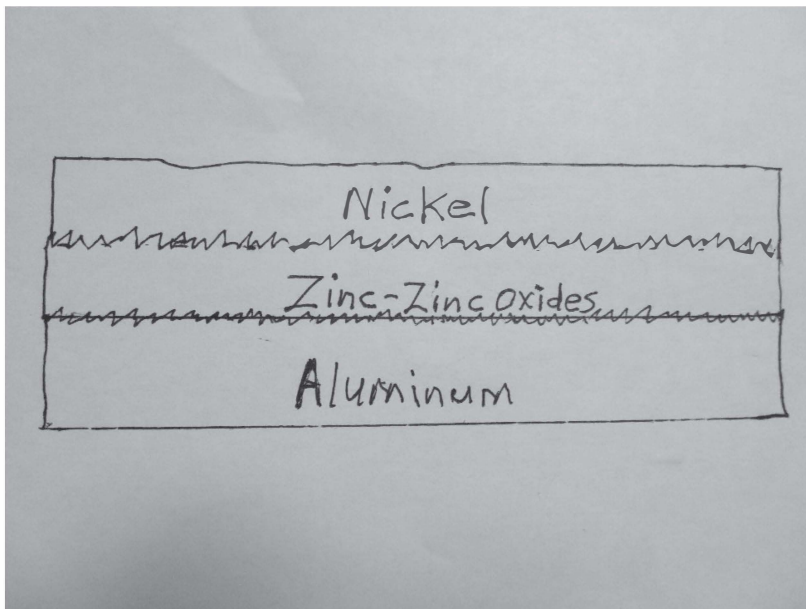 Nickel
Zinc-Zinc oxides
Aluminum